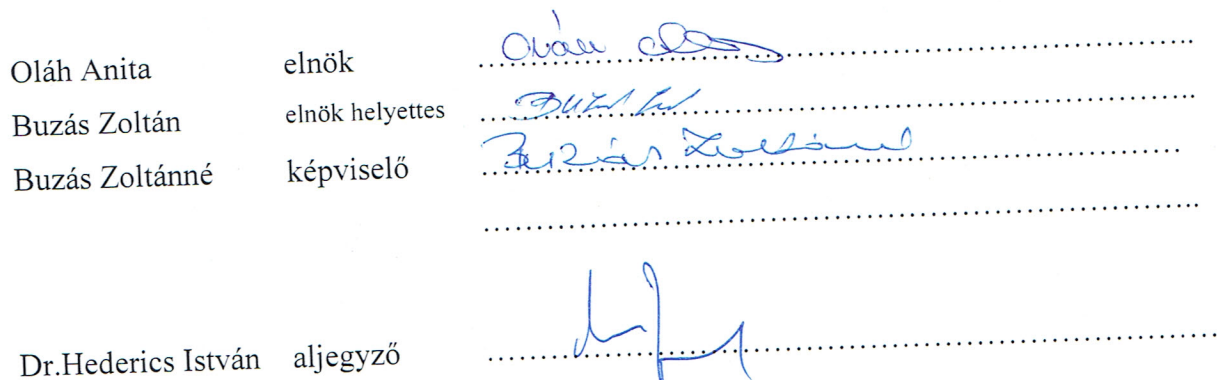 Oláh Anita elnök ........................................
Buzás Zoltán elnök helyettes ........................................
Buzás Zoltánné képviselő Buzás Zoltánné ........................................
........................................
Dr.Hederics István aljegyző ........................................